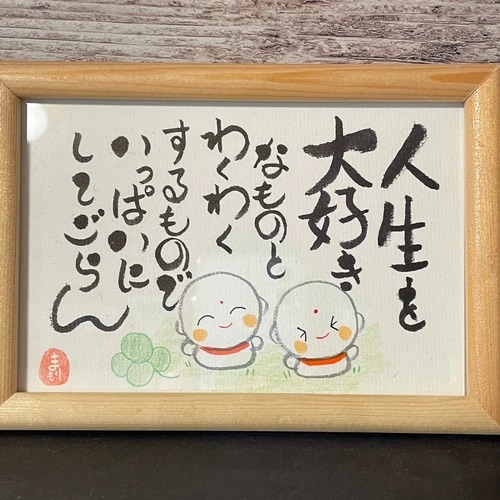 人生を
大好き
なものと
わくわく
するもので
いっぱいに
してごらん
まもり